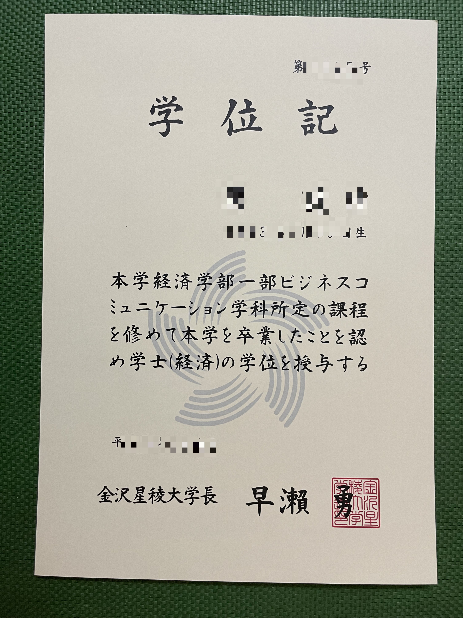 第 号
学位記
生
本学経済学部一部ビジネスコ
ミュニケーション学科所定の課程
を修めて本学を卒業したことを認
め学士(経済)の学位を授与する
平
金沢星稜大学長 早瀬 勇